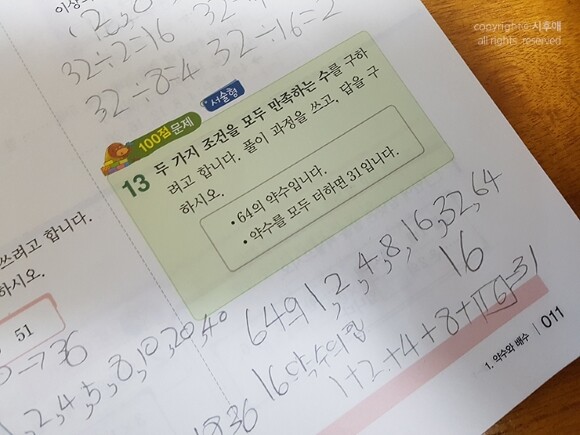 copyright@시후애
all rights reserved
32÷2=16
32÷8=4
32÷16=2
100점 문제
서술형
13 두 가지 조건을 모두 만족하는 수를 구하
려고 합니다. 풀이 과정을 쓰고, 답을 구
하시오.
•64의 약수입니다.
•약수를 모두 더하면 31입니다.
쓰려고 합니다.
하시오.
51
64의 1,2,4,8,16,32,64
16
16의 약수의 합
1+2+4+8+16=31
2,4,5,8,10,20,40
1836
1. 약수와 배수
011